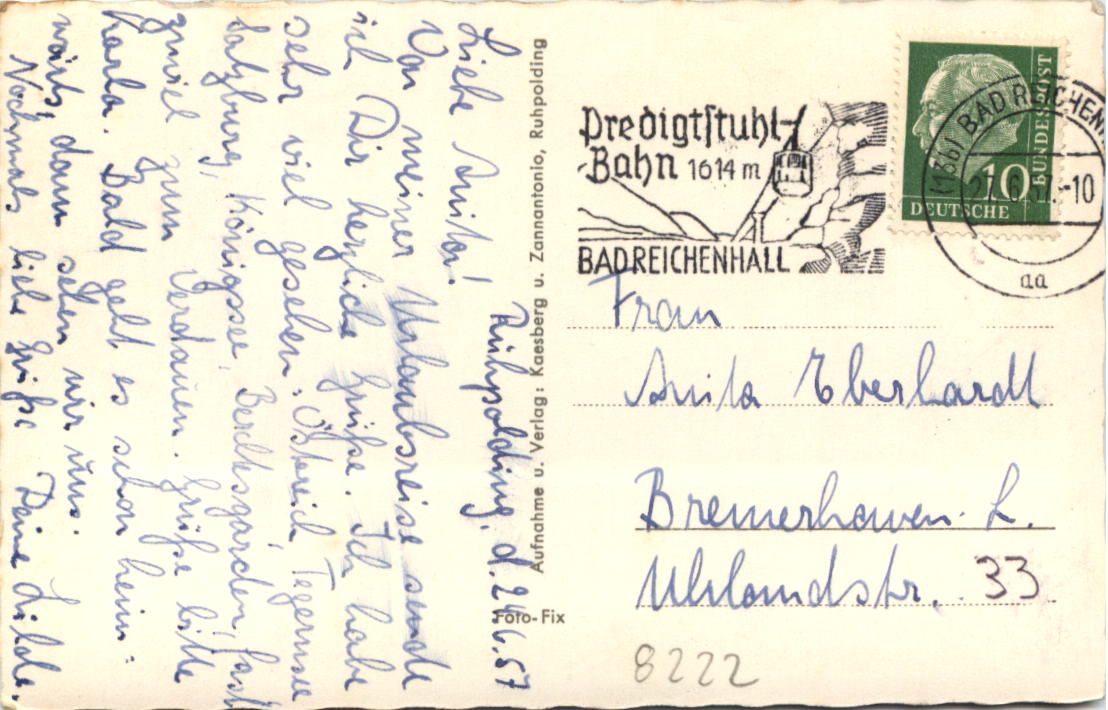 Ruhpolding, d. 24.6.57
Liebe Anita!
Von meiner Urlaubsreise sende
ich Dir herzliche Grüße. Ich habe
sehr viel gesehen: Östereich, Tegernsee
Salzburg, Königssee, Berchtsgarden, fast
zuviel zum Verdauen. Grüße bitte
Karla. Bald geht es schon heim-
wärts, dann sehen wir uns.
Nochmals liebe Grüße Deine Lilde.
Aufnahme u. Verlag: Kaesberg u. Zannantonio, Ruhpolding
Foto-Fix
Predigtstuhl-
Bahn 1614 m
BAD REICHENHALL
DEUTSCHE
BUNDESPOST
10
(13b) BAD REICHENH
27.6.57.-10
aa
Frau
Anita Eberhardt
Bremerhaven-L.
Uhlandstr. 33
8222